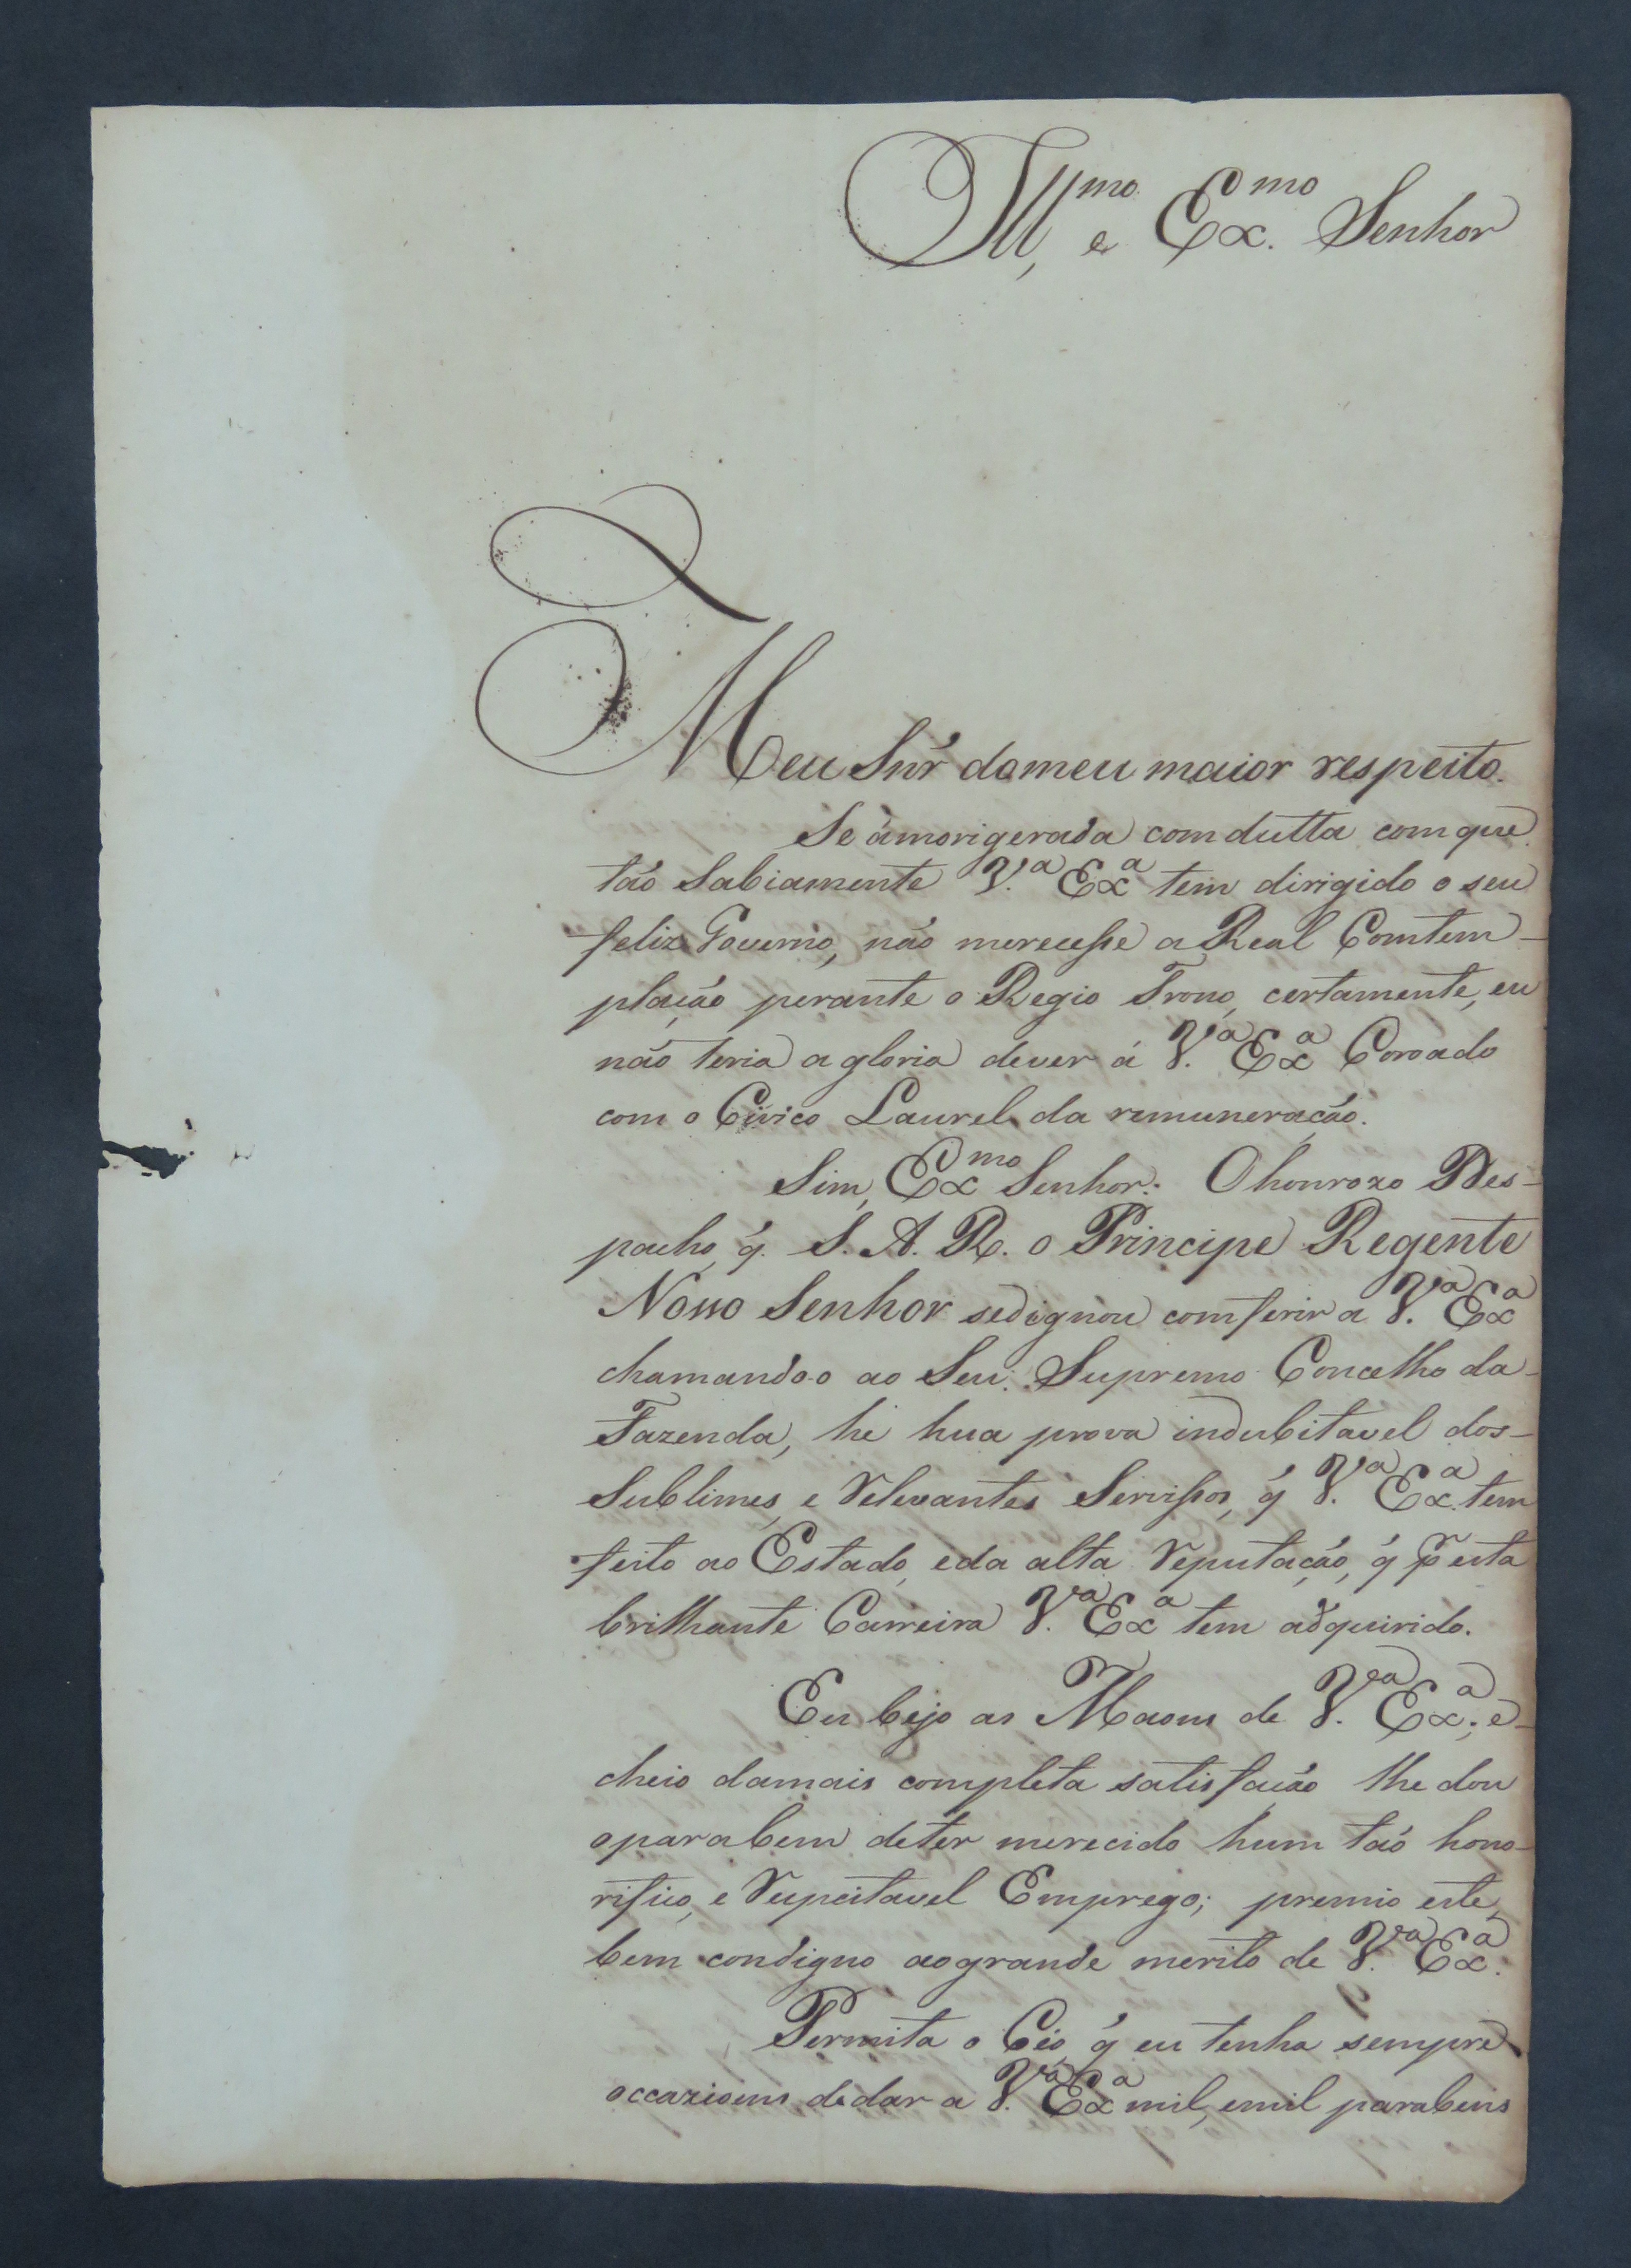 Ill.mo, e Ex.mo Senhor
Meu Snr' do meu maior respeito.
Se ámorigerada comdutta com que
tão Sabiamente V.a Ex.a tem dirigido o seu
feliz Governo, não merecesse a Real Comtem-
plação perante o Regio Trono, certamente, eu
não teria a gloria dever á V.a Ex.a Coroado
com o Civico Laurel da remuneração.
Sim, Ex.mo Senhor: O honrozo Des-
pacho, q̃. S. A. R. o Principe Regente
Nosso Senhor sedignou comferir a V.a Ex.a
chamando-o ao Seu Supremo Concelho da
Fazenda, he hua prova indubitavel dos-
Sublimes, e Relevantes Servissos, q̃ V.a Ex.a tem
feito ao Estado, eda alta Reputação, q̃ esta
brilhante Carreira V.a Ex.a tem adquirido.
Eu bejo as Maons de V.a Ex.a; e-
cheio damais completa satisfação lhe dou
oparabem deter merecido hum tão hono-
rifico, e Respeitavel Emprego; premio este,
bem condigno aogrande merito de V.a Ex.a.
Permita o Céo, q̃ eu tenha sempre
occazioens dedar a V.a Ex.a mil, emil parabens